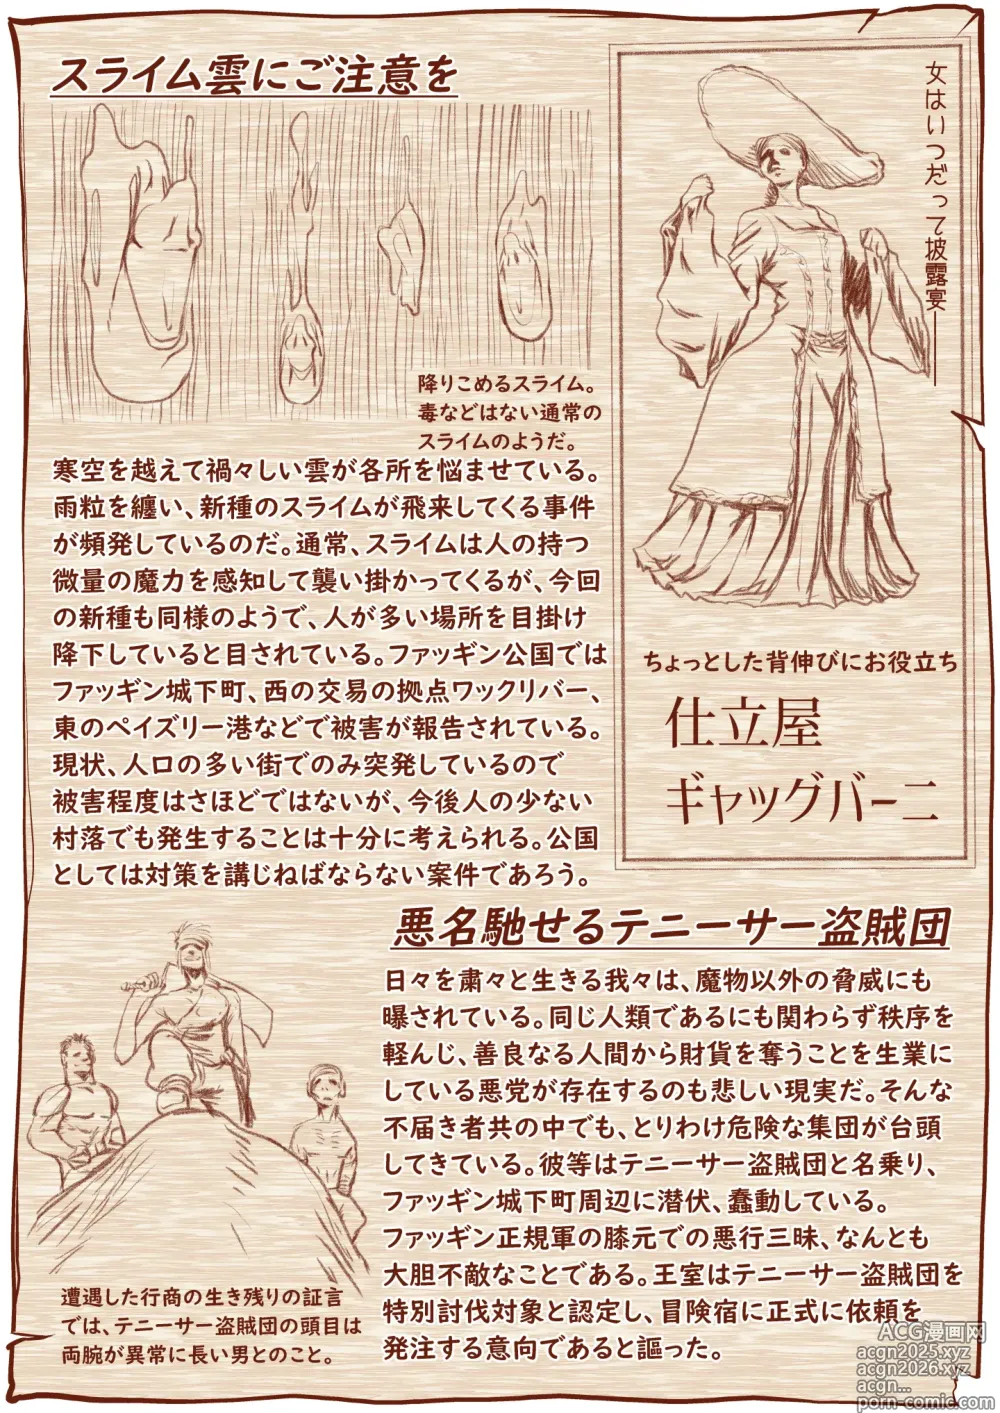 スライム雲にご注意を
降りこめるスライム。
毒などはない通常の
スライムのようだ。
寒空を越えて禍々しい雲が各所を悩ませている。
雨粒を纏い、新種のスライムが飛来してくる事件
が頻発しているのだ。通常、スライムは人の持つ
微量の魔力を感知して襲い掛かってくるが、今回
の新種も同様のようで、人が多い場所を目掛け
降下していると目されている。ファッギン公国では
ファッギン城下町、西の交易の拠点ワックリバー、
東のペイズリー港などで被害が報告されている。
現状、人口の多い街でのみ突発しているので
被害程度はさほどではないが、今後人の少ない
村落でも発生することは十分に考えられる。公国
としては対策を講じねばならない案件であろう。
女はいつだって披露宴――
ちょっとした背伸びにお役立ち
仕立屋
ギャッグバーニ
悪名馳せるテニーサー盗賊団
日々を粛々と生きる我々は、魔物以外の脅威にも
曝されている。同じ人類であるにも関わらず秩序を
軽んじ、善良なる人間から財貨を奪うことを生業に
している悪党が存在するのも悲しい現実だ。そんな
不届き者共の中でも、とりわけ危険な集団が台頭
してきている。彼等はテニーサー盗賊団と名乗り、
ファッギン城下町周辺に潜伏、蠢動している。
ファッギン正規軍の膝元での悪行三昧、なんとも
大胆不敵なことである。王室はテニーサー盗賊団を
特別討伐対象と認定し、冒険宿に正式に依頼を
発注する意向であると謳った。
遭遇した行商の生き残りの証言
では、テニーサー盗賊団の頭目は
両腕が異常に長い男とのこと。
ACG漫画网
acgn2025.xyz
acgn2026.xyz
acgn...
porn-comic.com